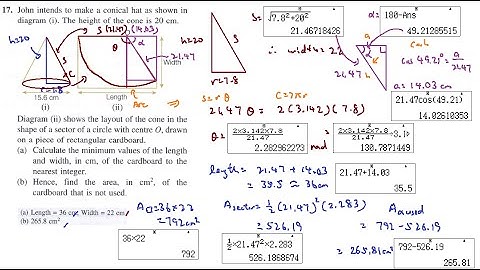 17. John intends to make a conical hat as shown in
diagram (i). The height of the cone is 20 cm.
h=20
S
C
r=7.8
15.6 cm
(i)
S (21.47)
(14.03)
O
θ
α
21.47
Width
Length
Arc
(ii)
Diagram (ii) shows the layout of the cone in the
shape of a sector of a circle with centre O, drawn
on a piece of rectangular cardboard.
(a) Calculate the minimum values of the length
and width, in cm, of the cardboard to the
nearest integer.
(b) Hence, find the area, in cm², of the
cardboard that is not used.
(a) Length = 36 cm, Width = 22 cm
(b) 265.8 cm²
h=20
S
r=7.8
S=
√7.8²+20²
21.46718426
∴ width = 22
α=
180-Ans
49.21285515
a
α
21.47
h
Cah
cos 49.21° = a/21.47
a = 14.03 cm
21.47cos(49.21)
14.02610353
S = rθ
C = 2πr
⇒ 21.47 θ = 2(3.142)(7.8)
θ =
2×3.142×7.8/21.47
2.282962273
rad
=
130.7871449
length = 21.47 + 14.03
= 35.5 ≈ 36cm
21.47+14.03
35.5
A□ = 36×22
= 792 cm²
36×22
792
A sector = ½ (21.47)² (2.283)
= 526.19
½×21.47²×2.283
526.1868674
A unused
= 792 − 526.19
= 265.81 cm²
792-526.19
265.81